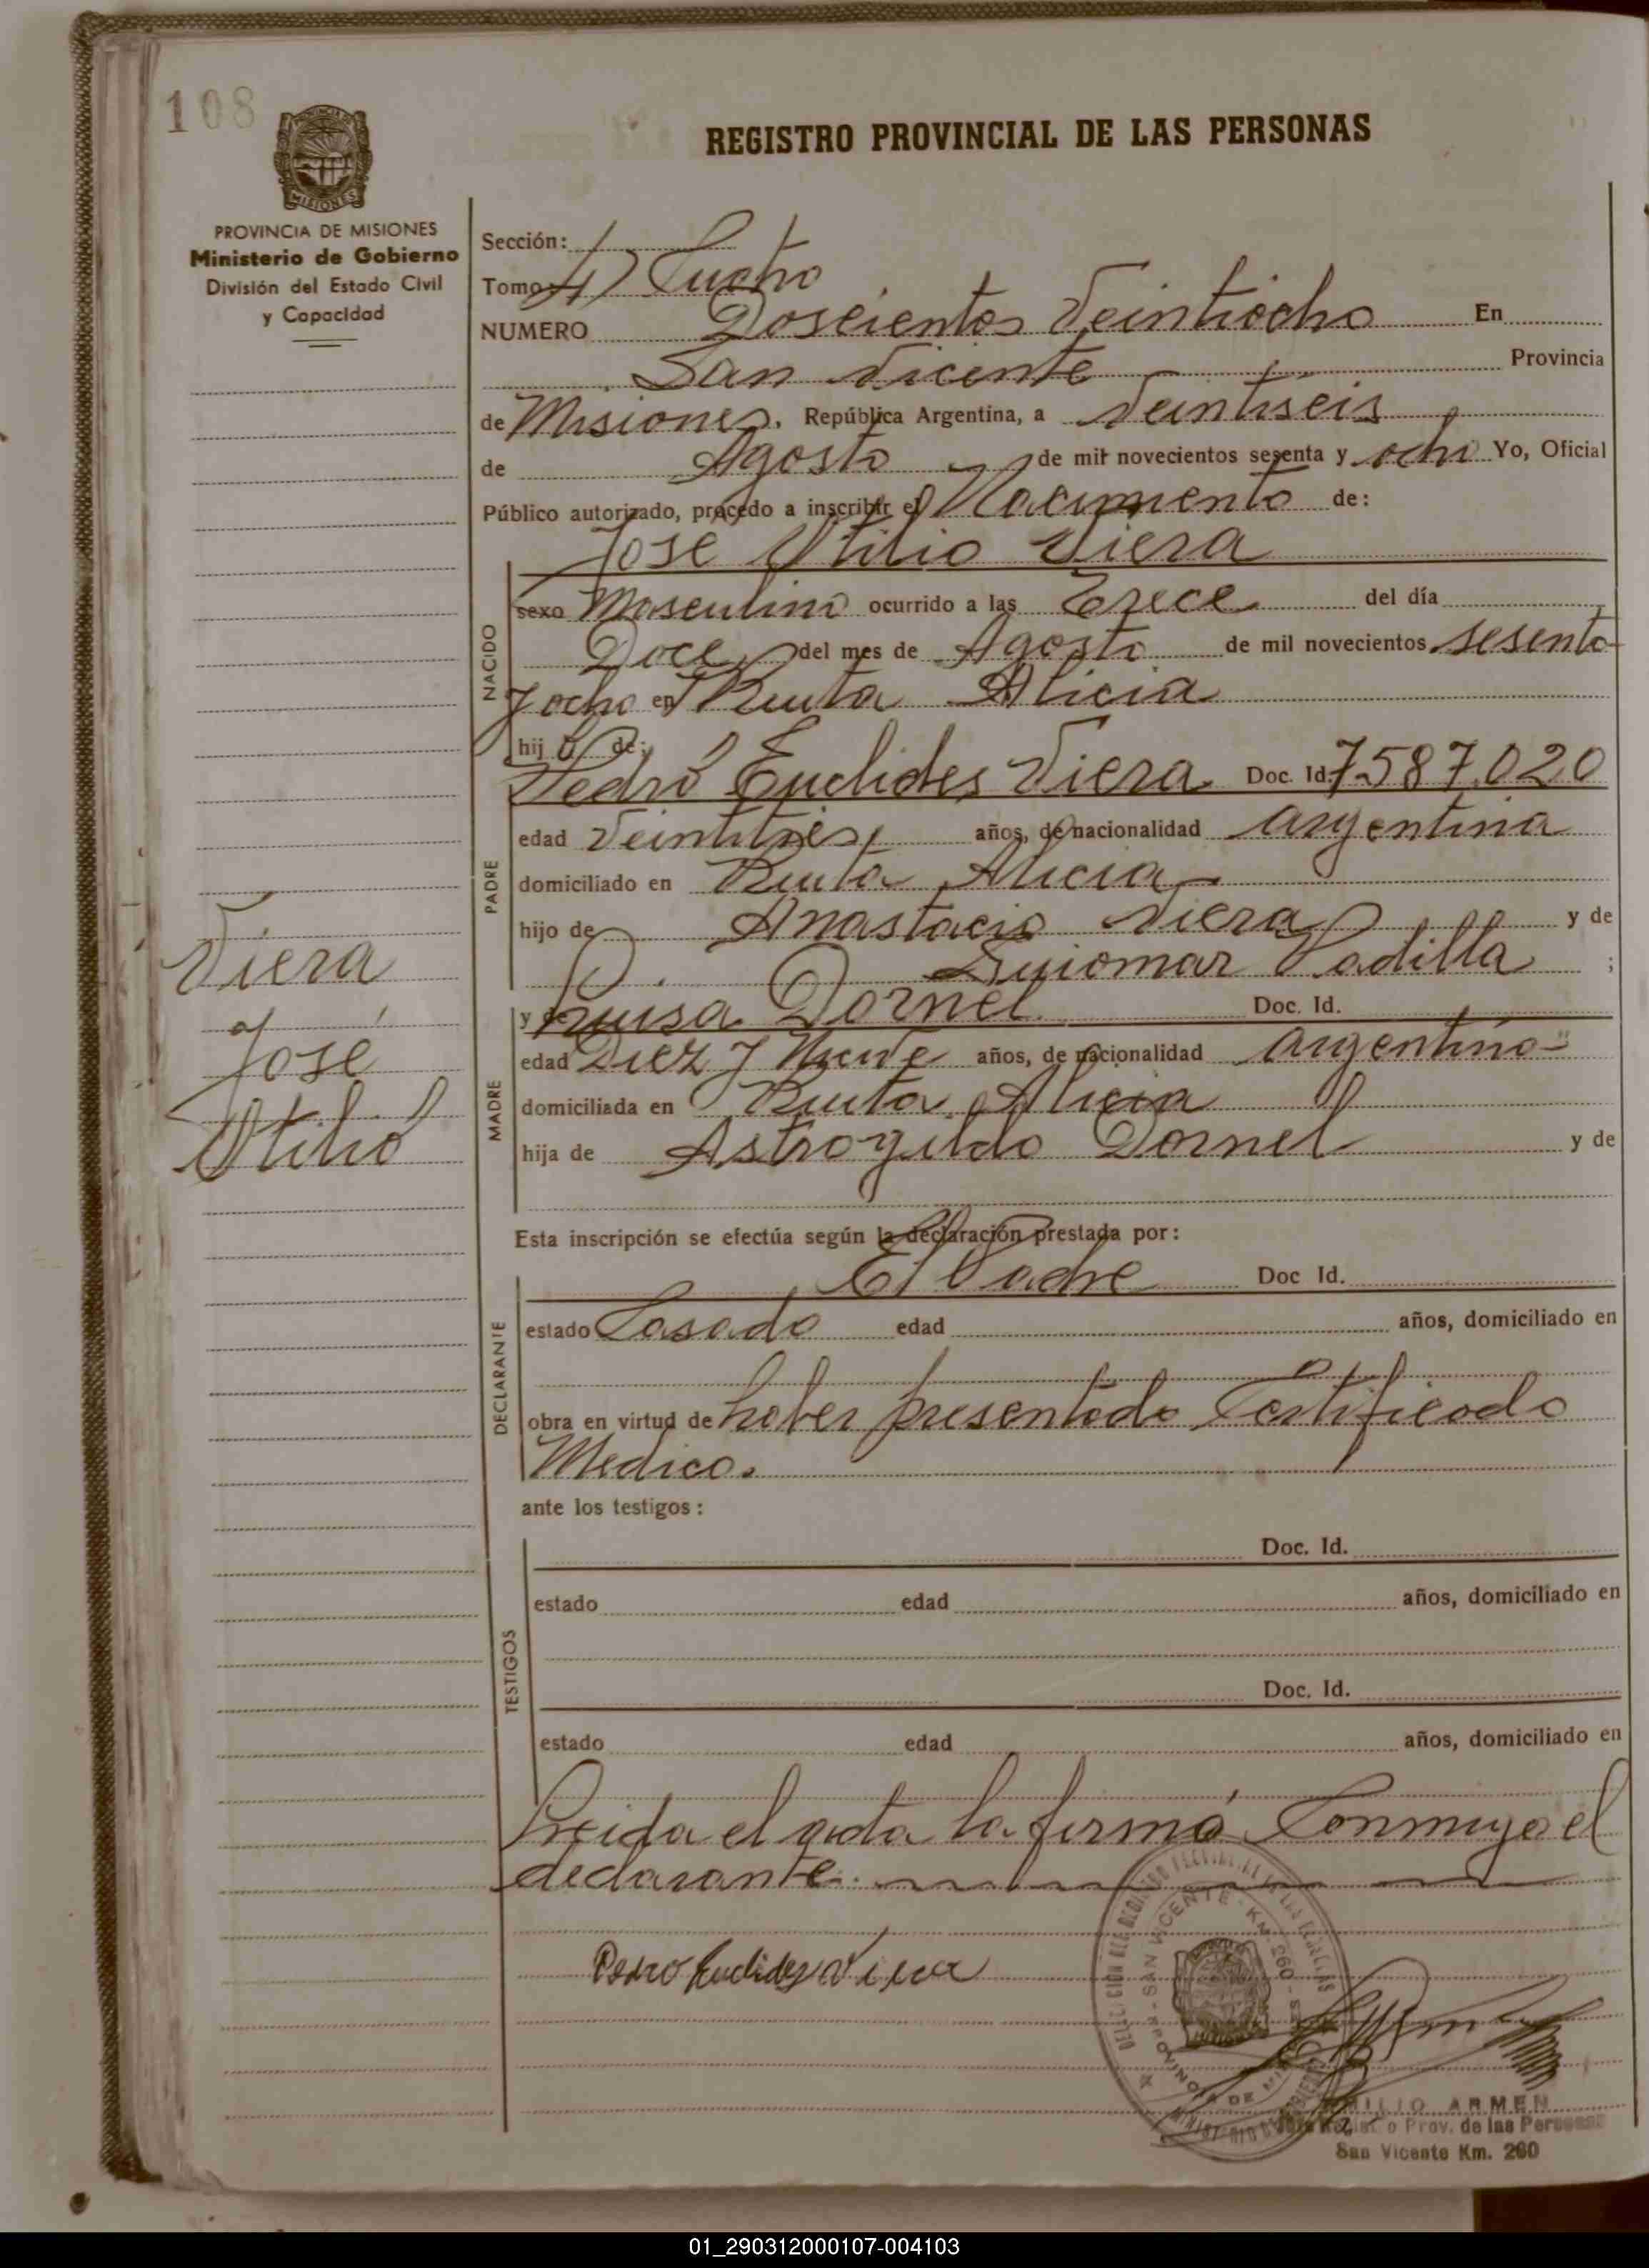 108
PROVINCIA DE MISIONES
Ministerio de Gobierno
División del Estado Civil
y Capacidad
REGISTRO PROVINCIAL DE LAS PERSONAS
Sección:
Tomo
NUMERO Doscientos Veintiocho En
San Vicente Provincia
de Misiones. República Argentina, a Veintiseis
de Agosto de mil novecientos sesenta y ocho Yo, Oficial
Público autorizado, procedo a inscribir el Nacimiento de:
Jose Otilio Viera
NACIDO
sexo Masculino ocurrido a las Trece del día
Doce del mes de Agosto de mil novecientos sesenta
y ocho en Ruta Alicia
hijo de:
PADRE
Pedro Euclides Viera Doc. Id. 7.587.020
edad Veintitres años, de nacionalidad argentina
domiciliado en Ruta Alicia
hijo de Anastacio Viera y de
Guiomar Padilla ;
MADRE
y de Luisa Dornel. Doc. Id.
edad Diez y Nueve años, de nacionalidad argentino
domiciliada en Ruta Alicia
hija de Astrogildo Dornel y de
Viera
José
Otilio
Esta inscripción se efectúa según la declaración prestada por:
DECLARANTE
El Padre Doc Id.
estado Casado edad años, domiciliado en
obra en virtud de haber presentado Certificado
Medico.
ante los testigos:
TESTIGOS
Doc. Id.
estado edad años, domiciliado en
Doc. Id.
estado edad años, domiciliado en
Leida el acta la firmó Conmigo el
declarante.
Pedro Euclides Viera
SAN VICENTE - KM 260
PROVINCIA DE
ARMEN
Prov. de las Personas
San Vicente Km. 260
01_290312000107-004103